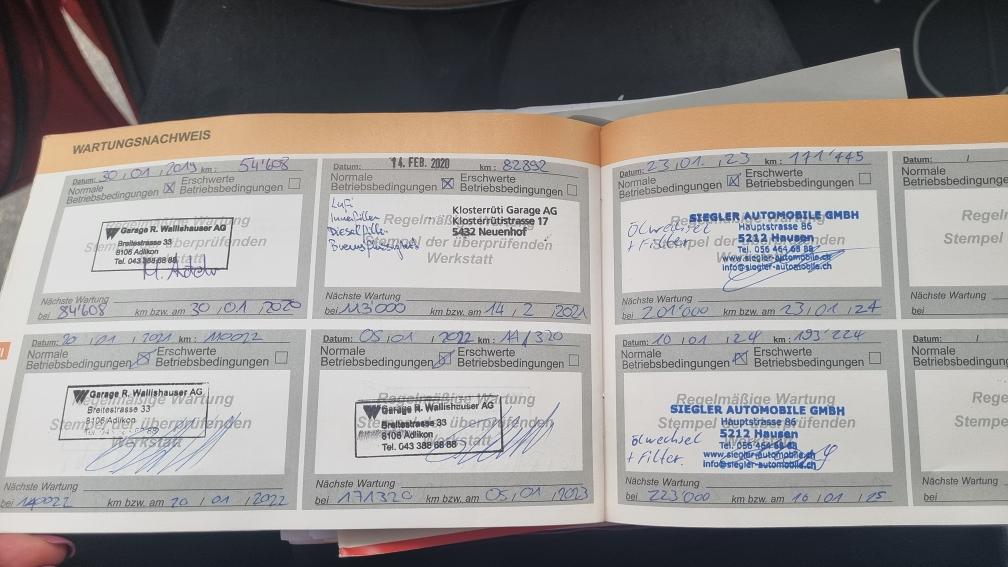 WARTUNGSNACHWEIS
Datum: 30 , 01 , 2019 km : 54'608
Normale Betriebsbedingungen ☒ Erschwerte Betriebsbedingungen ☐
Regelmäßige Wartung
Garage R. Wallishauser AG
Breitestrasse 33
8106 Adlikon
Tel. 043 388 68 88
Nächste Wartung
bei 84'608 km bzw. am 30 , 01 , 2020
Datum: 14. FEB. 2020 km : 82892
Normale Betriebsbedingungen ☒ Erschwerte Betriebsbedingungen ☐
Lufi
Innenfilter
Dieselfilter
Regelmäßige Wartung
Stempel der überprüfenden
Werkstatt
Klosterrüti Garage AG
Klosterrütistrasse 17
5432 Neuenhof
Nächste Wartung
bei 113'000 km bzw. am 14 , 2 , 2021
Datum: 20 , 01 , 2021 km : 110022
Normale Betriebsbedingungen ☒ Erschwerte Betriebsbedingungen ☐
Regelmäßige Wartung
Garage R. Wallishauser AG
Breitestrasse 33
8106 Adlikon
Werkstatt
Nächste Wartung
bei 140022 km bzw. am 20 , 01 , 2022
Datum: 05 , 01 , 2022 km :
Normale Betriebsbedingungen ☒ Erschwerte Betriebsbedingungen ☐
Regelmäßige Wartung
Garage R. Wallishauser AG
Breitestrasse 33
8106 Adlikon
Tel. 043 388 68 88
Nächste Wartung
bei 171320 km bzw. am 05 , 01 , 2023
Datum: 23 , 01. , 23 km : 171'445
Normale Betriebsbedingungen ☒ Erschwerte Betriebsbedingungen ☐
Ölwechsel
+ Filter
SIEGLER AUTOMOBILE GMBH
Hauptstrasse 86
5212 Hausen
Tel. 056 464 68 88
www.siegler-automobile.ch
info@siegler-automobile.ch
Nächste Wartung
bei 201'000 km bzw. am 23 , 01 , 24
Datum: 10 , 01 , 24 km : 193'224
Normale Betriebsbedingungen ☒ Erschwerte Betriebsbedingungen ☐
Regelmäßige Wartung
Ölwechsel
+ Filter.
SIEGLER AUTOMOBILE GMBH
Hauptstrasse 86
5212 Hausen
Tel. 056 464 68 88
www.siegler-automobile.ch
info@siegler-automobile.ch
Nächste Wartung
bei 223'000 km bzw. am 10 , 01 , 25
Datum: /
Normale
Betriebsbedingungen
Regelmäßig
Stempel
Nächste Wartung
bei
Datum: /
Normale
Betriebsbedingungen
Regelmäßig
Stempel
Nächste Wartung
bei